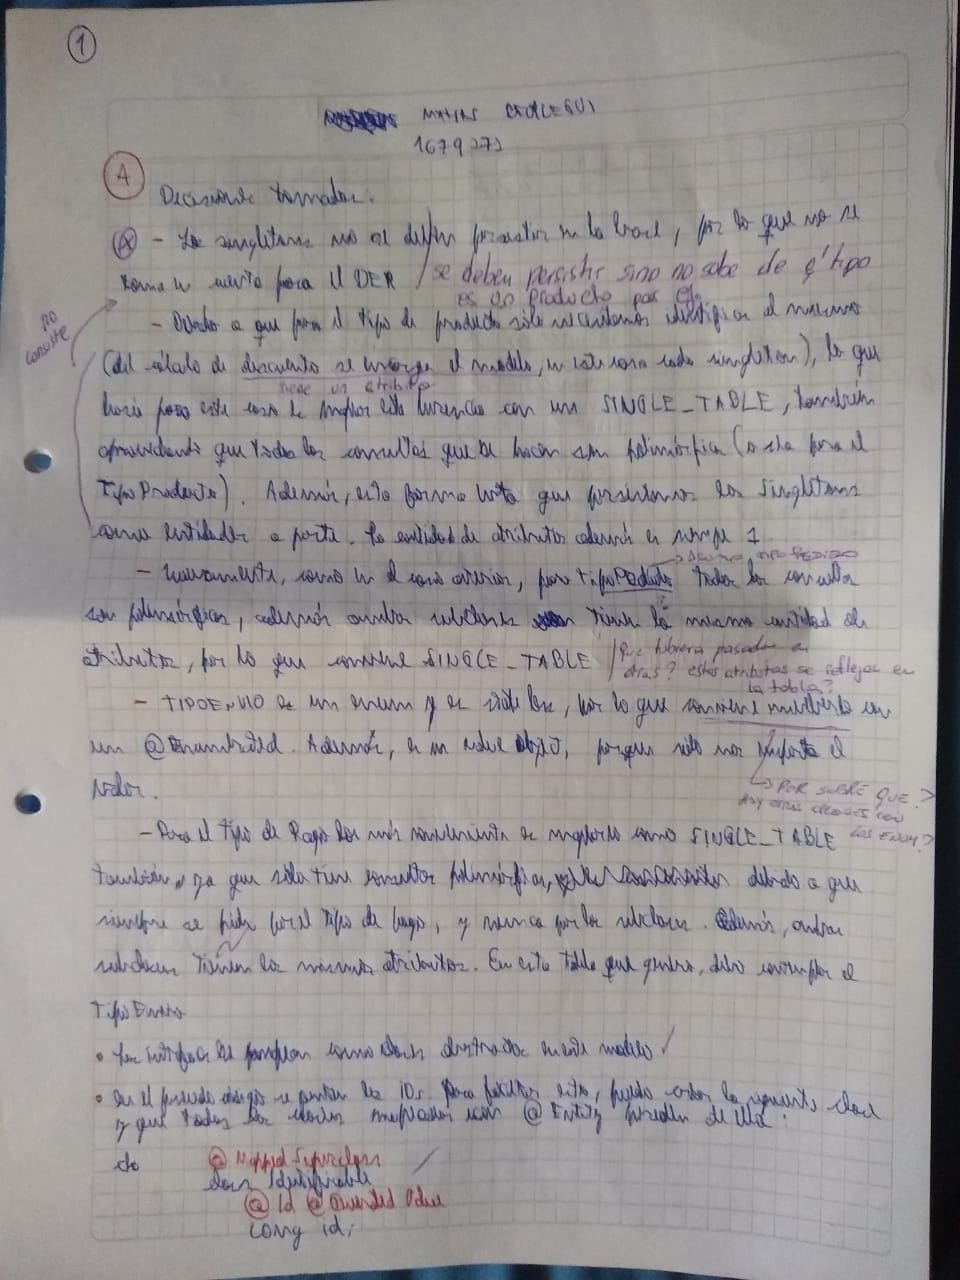 1
MATIAS
1679272
A
Decisiones tomadas:
- Los singletons no se deben persistir en la base, por lo que no se
toma en cuenta para el DER / se deben persistir sino no sabe de q' tipo
es un producto por ej.
no consiste
- Debido a que para el tipo de producto sólo necesitamos identificar el mismo
(del cálculo de descuento se encarga el modelo, en este caso cada singleton), lo que
tiene un atributo
haría para este caso es mapear esta herencia con un SINGLE_TABLE, también
aprovechando que todas las consultas que se hacen son polimórficas (o sea para el
TipoProducto). Además, esta forma evita que persistamos los singletons
como entidades a parte. La cantidad de atributos además es siempre 1.
- Nuevamente, como en el caso anterior, para TipoPedido todas las consultas
son polimórficas, además ambas subclases tienen la misma cantidad de
atributos, por lo que conviene SINGLE_TABLE / Que hubiera pasado con
otras? estos atributos se reflejan en
la tabla?
- TIPOENVIO es un enum y es stateless, por lo que conviene mapearlo con
un @Enumerated. Además, es un value object, porque sólo nos importa el
valor.
→ POR SOBRE QUE?
HAY OTRAS OPCIONES CON
LOS ENUM?
- Para el tipo de Pago lo más conveniente es mapearlo como SINGLE_TABLE
también, ya que sólo tiene consultas polimórficas, debido a que
siempre se pide por el tipo de pago, y nunca por las subclases. Además, ambas
subclases tienen los mismos atributos. En esta tabla que genero, debo contemplar el
TipoEnvio
• Las interfaces se mapean como clases abstractas en este modelo. /
• En el pseudo código se omiten los IDs. Para facilitar esto, puedo crear la siguiente clase
y que todas las clases mapeadas con @Entity hereden de ella:
@MappedSuperclass /
class Identificable
@Id @Generated Value
Long id;